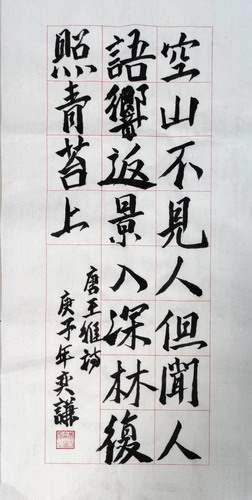 空山不見人但聞人
語響返景入深林復
照青苔上
唐王維詩
庚子年奕謙